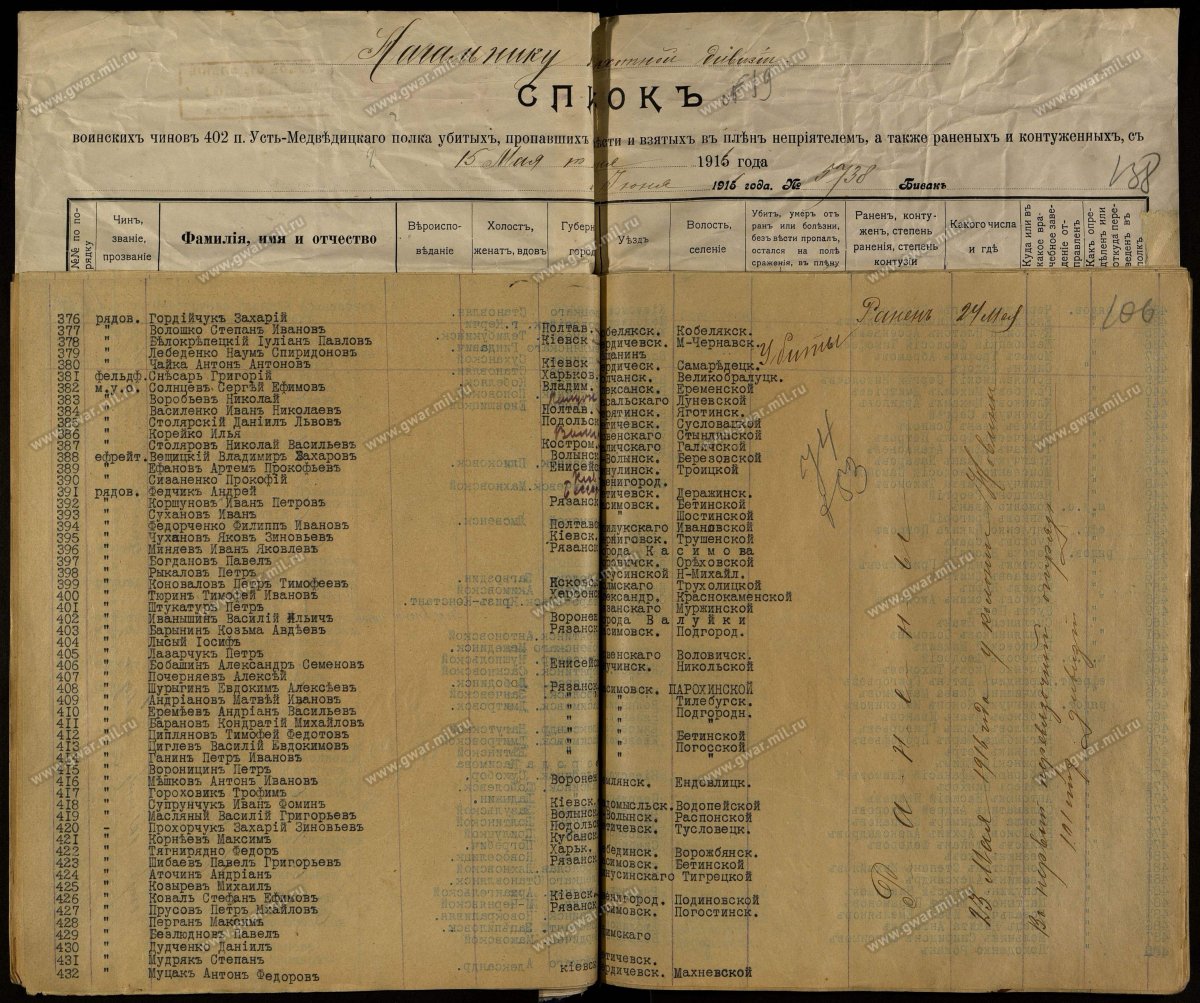 Начальнику пѣхотной дивизіи
СПИСОКЪ № 19
воинскихъ чиновъ 402 п. Усть-Медвѣдицкаго полка убитыхъ, пропавшихъ вѣсти и взятыхъ въ плѣнъ непріятелемъ, а также раненыхъ и контуженныхъ, съ
15 Мая 1916 года
Іюня 1916 года. № 5738 Бивакъ
138
№№ по порядку
Чинъ, званіе, прозваніе
Фамилія, имя и отчество
Вѣроисповѣданіе
Холостъ, женатъ, вдовъ
Губерн город
Уѣздъ
Волость, селеніе
Убитъ, умеръ отъ ранъ или болѣзни, безъ вѣсти пропалъ, остался на полѣ сраженія, въ плѣну
Раненъ, контуженъ, степень раненія, степень контузіи
Какого числа и гдѣ
Куда или въ какое врачебное заведеніе отправленъ
Какъ опредѣленъ или откуда переведенъ въ полкъ
106
376 рядов. Гордійчукъ Захарій Раненъ 24 Мая
377 " Волошко Степанъ Ивановъ Полтав. обелякск. Кобелякск.
378 " Бѣлокрѣпецкій Іуліанъ Павловъ Кіевск рдичевск. М-Чернавск. Убиты
379 " Лебеденко Наумъ Спиридоновъ щанинъ
380 " Чайка Антонъ Антоновъ Кіевск рдическ. Самарѣдецк.
381 фельдф. Снѣсаръ Григорій Харьков. лчанск. Великобралуцк.
382 м.у.о. Солнцевъ Сергѣй Ефимовъ Владим. ександр. Еременской
383 " Воробьевъ Николай сальскаго Луневской
384 " Василенко Иванъ Николаевъ Полтав. рятинск. Яготинск.
385 " Столярскій Даніилъ Львовъ Подольск тичевск. Сусловацкой
386 " Корейко Илья венскаго Стындынской
387 " Столяровъ Николай Васильев Костром. личскаго Галичской
388 ефрейт. Вещицкій Владимиръ Захаровъ Волынск Волынск. Березовской
389 " Ефановъ Артемъ Прокофьевъ Енисейс нулинск. Троицкой
390 " Сизаненко Прокофій енигород.
391 рядов. Федчикъ Андрей тичевск. Деражинск.
392 " Коршуновъ Иванъ Петровъ Рязанск симовск. Бетинской
393 " Сухановъ Иванъ " Шостинской
394 " Федорченко Филиппъ Ивановъ Полтавс илукскаго Ивановской
395 " Чухановъ Яковъ Зиновьевъ Кіевск. рниговск. Трушенской
396 " Миняевъ Иванъ Яковлевъ Рязанск орода Касимова
397 " Богдановъ Павелъ Оръховской
398 " Рыкаловъ Петръ усинской Н-Михайл.
399 " Коноваловъ Петръ Тимофеевъ Псковс лмскаго Трухолицкой
400 " Тюринъ Тимофей Ивановъ Херсонс лександр. Краснокаменской
401 " Штукатуръ Петръ занскаго Муржинской
402 " Иванышинъ Василій Ильичъ Воронеж орода Валуйки
403 " Барынинъ Козьма Авдѣевъ Рязанск симовск. Подгород.
404 " Лысый Іосифъ
405 " Лазарчукъ Петръ венскаго Воловичск.
406 " Бобашинъ Александръ Семеновъ Енисейс учинск. Никольской
407 " Почерняевъ Алексѣй
408 " Шурыгинъ Евдокимъ Алексѣевъ Рязанск симовск. ПАРОХИНСКОЙ
409 " Андріановъ Матвѣй Ивановъ " " Тилебугск.
410 " Еремѣевъ Андріанъ Васильевъ " " Подгородн.
411 " Барановъ Кондратій Михайловъ
412 " Ципляновъ Тимофей Федотовъ " " Бетинской
413 " Циглевъ Василій Евдокимовъ " " Погосской
414 " Ганинъ Петръ Ивановъ " " "
415 " Вороницинъ Петръ
416 " Мѣшковъ Антонъ Ивановъ Воронеж млянск. Ендовлицк.
417 " Гороховикъ Трофимъ
418 " Супрунчукъ Иванъ Фоминъ Кіевск. домысльск. Водопейской
419 " Масляный Василій Григорьевъ Волынск. Волынск. Распонской
420 – Прохорчукъ Захарій Зиновьевъ Подольс етичевск. Тусловецк.
421 " Корнѣевъ Максимъ Кубанск
422 " Тягнирядно Федоръ Харьк. бединск. Ворожбянск.
423 " Шибаевъ Павелъ Григорьевъ Рязанск симовск. Бетинской
424 " Аточинъ Андріанъ нусинскаго Тигрецкой
425 " Козыревъ Михаилъ
426 " Коваль Стефанъ Ефимовъ Кіевск. енигород. Подиновской
427 " Прусовъ Петръ Михайловъ Рязанск симовск. Погостинск.
428 " Перганъ Максимъ
429 " Безлюдновъ Павелъ имскаго
430 " Дудченко Даніилъ
431 " Мудрякъ Степанъ тичевск.
432 " Муцакъ Антонъ Федоровъ кіевск рдичевск. Махневской
Раненые
25 Мая 1916 года у колоніи
Въ первый перевязочный отрядъ
101 пѣх. Дивизіи
www.gwar.mil.ru